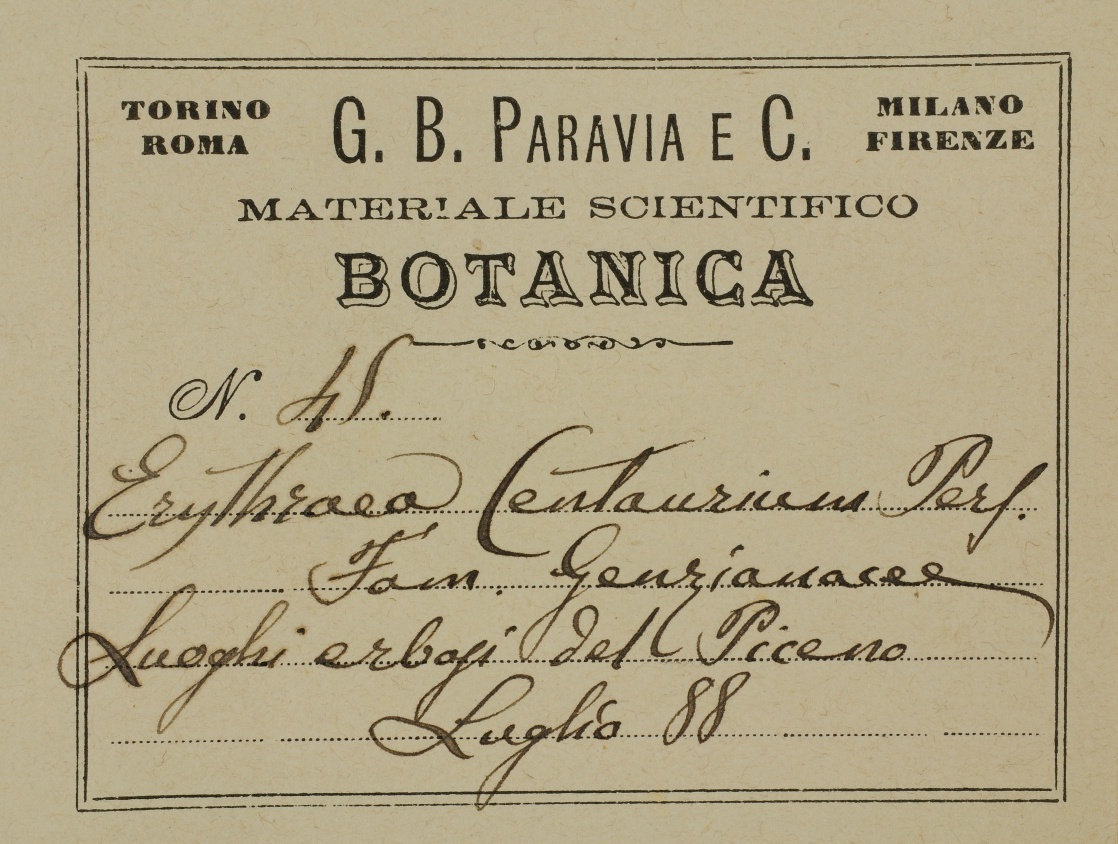 TORINO G. B. PARAVIA E C. MILANO
ROMA FIRENZE
MATERIALE SCIENTIFICO
BOTANICA
N. 45.
Erythraea Centaurium Pers.
Fam. Genzianacee
Luoghi erbosi del Piceno
Luglio 88